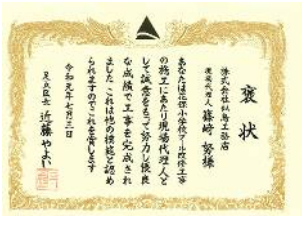 褒状
株式会社似鳥工務店
現場代理人 篠﨑 努様
あなたは花保小学校プール改修工事
の施工にあたり現場代理人と
して誠意をもって努力し優良
な成績で工事を完成され
ました これは他の模範と認め
られますのでこれを賞します
令和元年七月三日
足立区長 近藤やよい